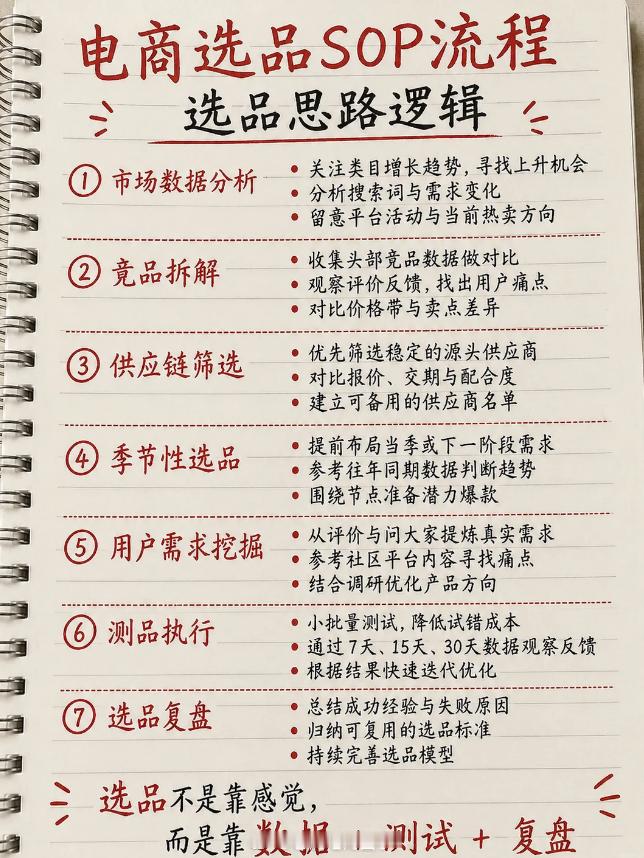 电商选品SOP流程
选品思路逻辑
① 市场数据分析
• 关注类目增长趋势,寻找上升机会
• 分析搜索词与需求变化
• 留意平台活动与当前热卖方向
② 竟品拆解
• 收集头部竞品数据做对比
• 观察评价反馈,找出用户痛点
• 对比价格带与卖点差异
③ 供应链筛选
• 优先筛选稳定的源头供应商
• 对比报价、交期与配合度
• 建立可备用的供应商名单
④ 季节性选品
• 提前布局当季或下一阶段需求
• 参考往年同期数据判断趋势
• 围绕节点准备潜力爆款
⑤ 用户需求挖掘
• 从评价与问大家提炼真实需求
• 参考社区平台内容寻找痛点
• 结合调研优化产品方向
⑥ 测品执行
• 小批量测试,降低试错成本
• 通过7天、15天、30天数据观察反馈
• 根据结果快速迭代优化
⑦ 选品复盘
• 总结成功经验与失败原因
• 归纳可复用的选品标准
• 持续完善选品模型
选品不是靠感觉,
而是靠 数据 测试 + 复盘